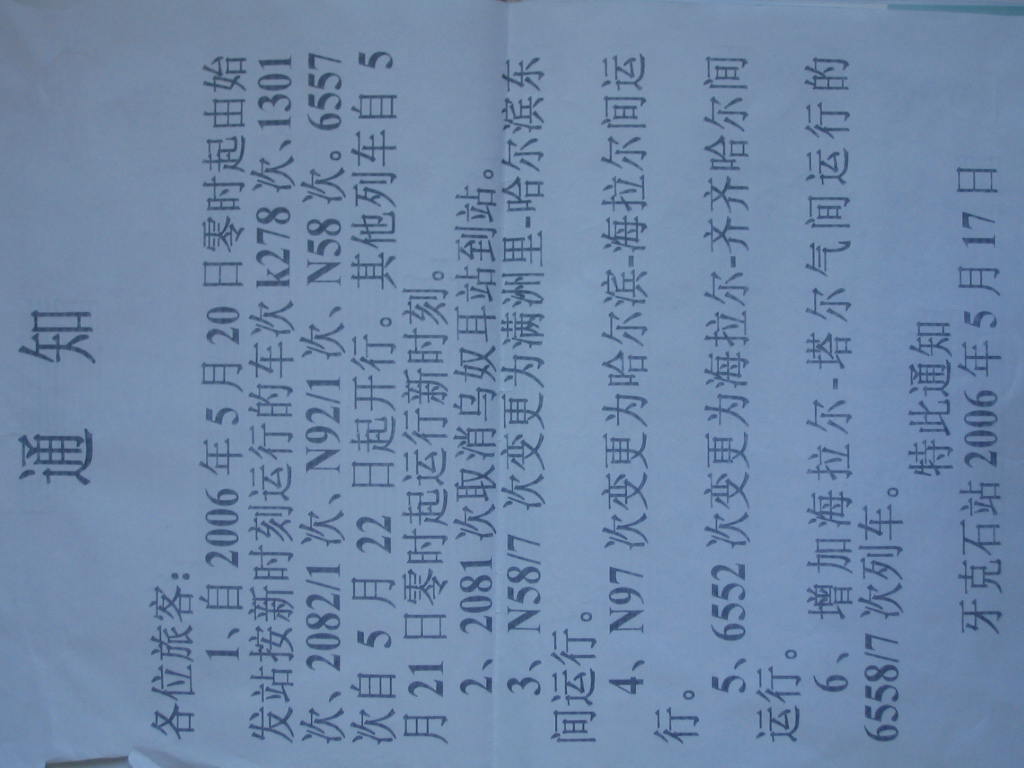 通 知
各位旅客：
1、自 2006 年 5 月 20 日零时起由始
发站按新时刻运行的车次 k278 次、1301
次、2082/1 次、N92/1 次、N58 次。6557
次自 5 月 22 日起开行。其他列车自 5
月 21 日零时起运行新时刻。
2、2081 次取消乌奴耳站到站。
3、N58/7 次变更为满洲里-哈尔滨东
间运行。
4、N97 次变更为哈尔滨-海拉尔间运
行。
5、6552 次变更为海拉尔-齐齐哈尔间
运行。
6、增加海拉尔-塔尔气间运行的
6558/7 次列车。
特此通知
牙克石站 2006 年 5 月 17 日